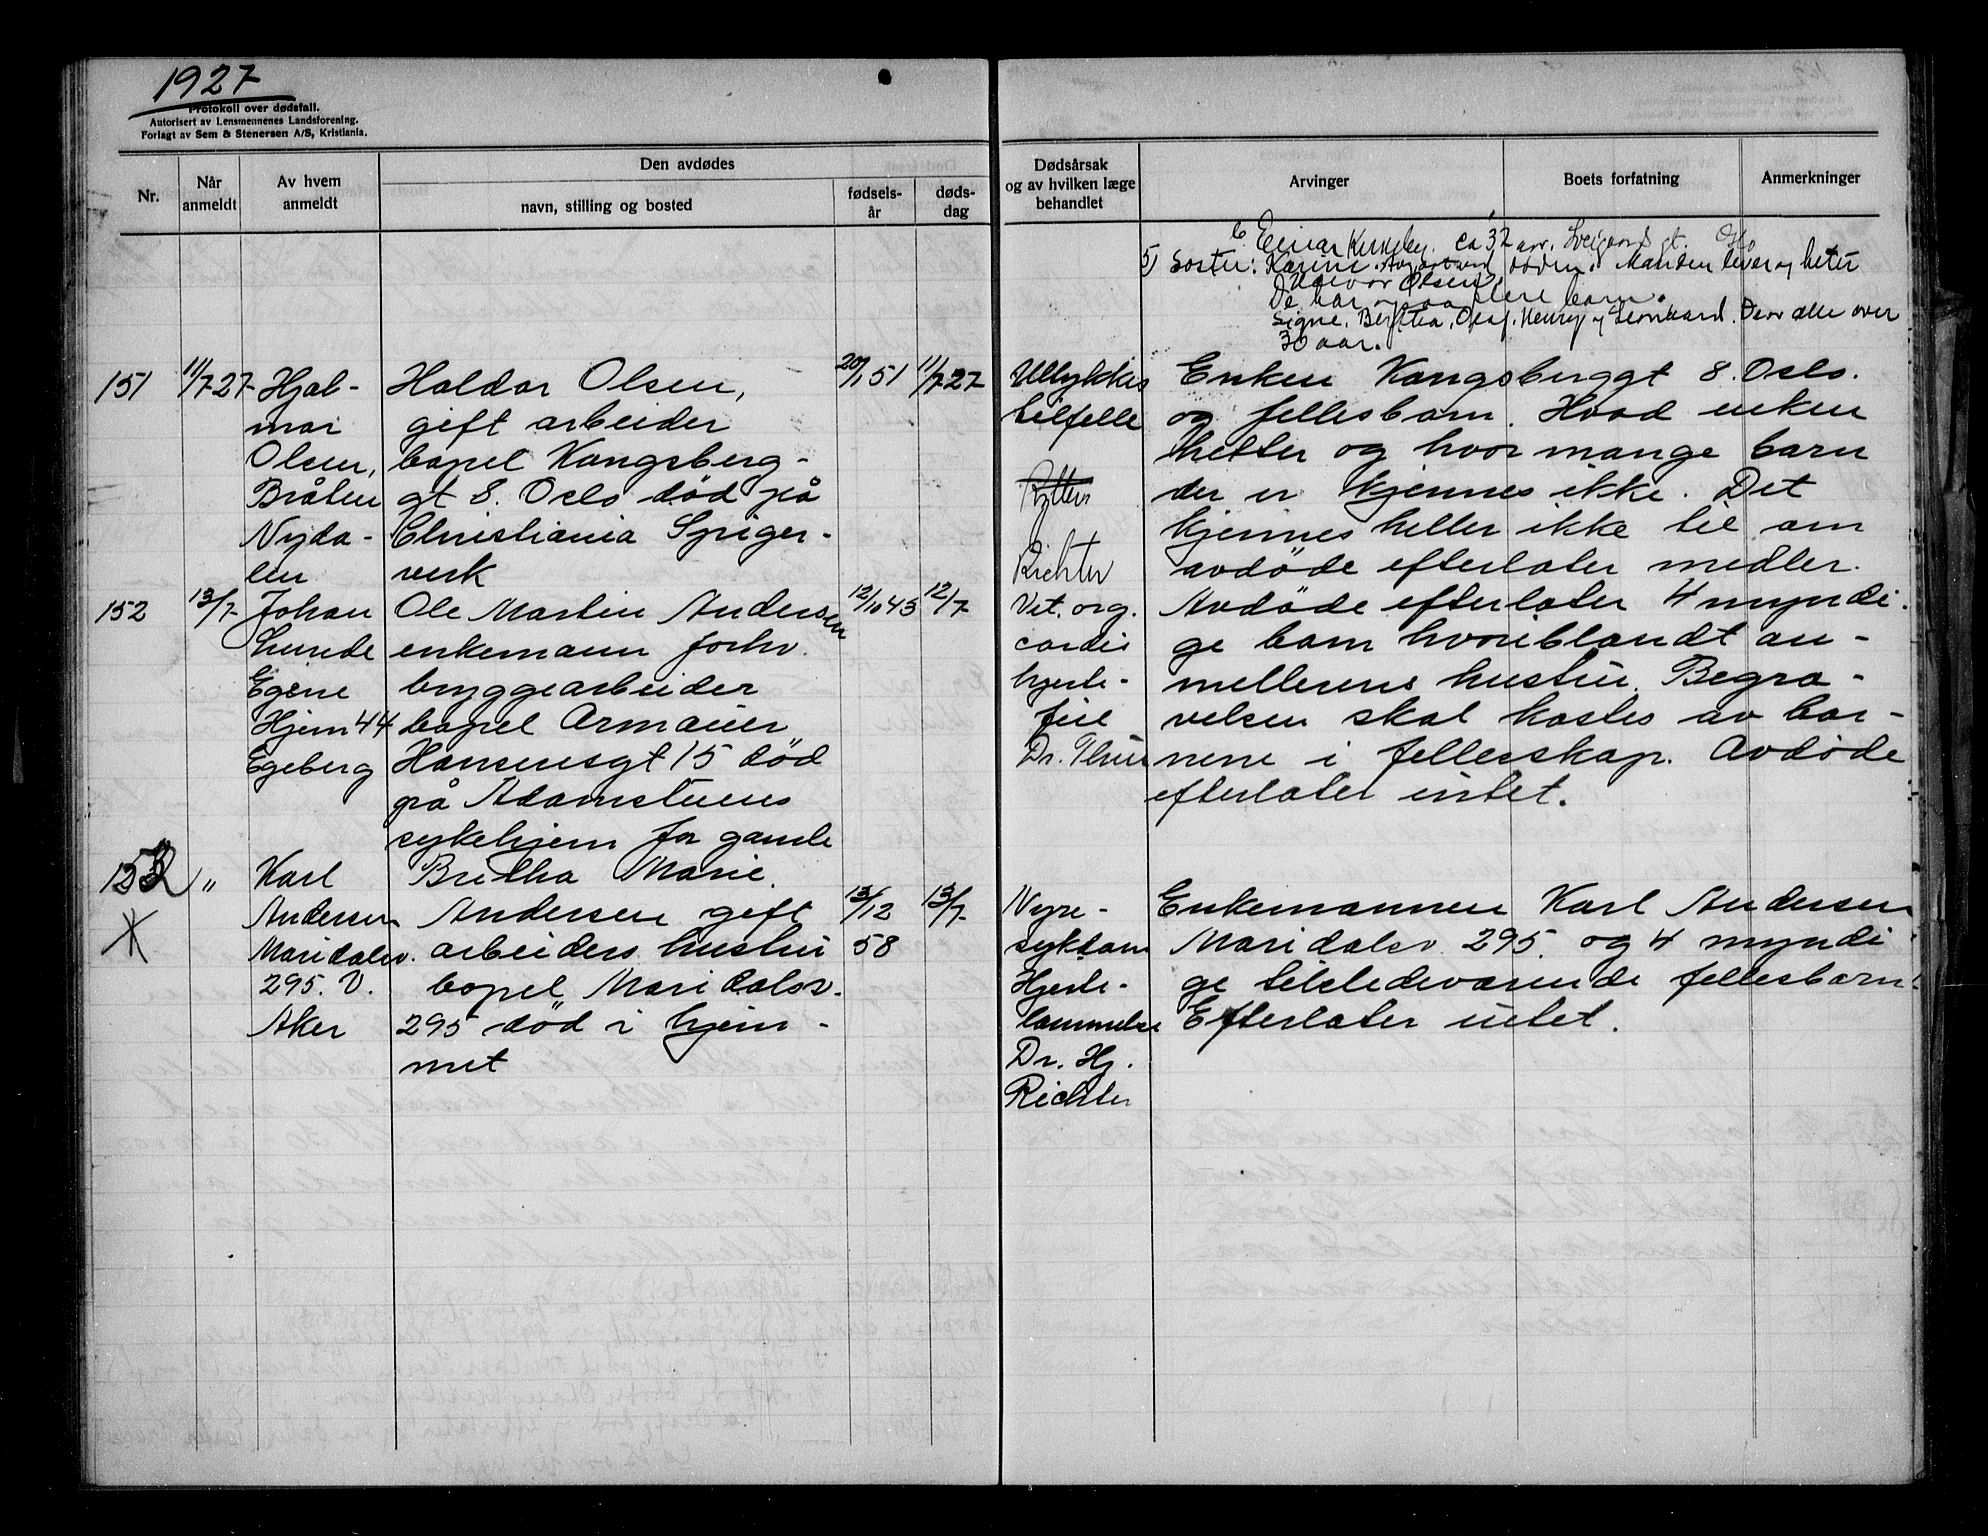 1927
Protokoll over dødsfall.
Autorisert av Lensmennenes Landsforening.
Forlagt av Sem & Stenersen A/S, Kristiania.
Nr.
Når anmeldt
Av hvem anmeldt
Den avdødes
navn, stilling og bosted
fødsels-år
døds-dag
Dødsårsak og av hvilken læge behandlet
Arvinger
Boets forfatning
Anmerkninger
Einar ca 32 aar. gt.
5) Søster: Karine døden. Manden lever og heter
Olsen.
De har ogsaa flere barn.
Signe, Bertha, Olaf, Henry og Leonhard. De er alle over
30 aar.
151
11/7 27
Hjal-
mar
Olsen,
Bråten
Nyda-
len
Haldor Olsen,
gift arbeider
bopel Kongsberg-
gt 8. Oslo død på
Christiania Spiger-
verk
20/1 51
11/7 27
Ulykkes
tilfelle
Richter
Enken Kongsberggt 8. Oslo.
og fellesbarn. Hvad enken
hetter og hvor mange barn
der er kjennes ikke. Det
kjennes heller ikke til om
avdøde efterlater midler.
152
13/7
Johan
Lunde
Egene
Hjem 44
Egeberg
Ole Martin Andersen
enkemann forhv.
bryggearbeider
bopel Armauer
Hansensgt 15 død
på Adamstuens
sykehjem for gamle
12/10 43
12/7
Vit. org.
cordis
hjerte-
feil
Dr. Thue
Avdøde efterlater 4 myndi-
ge barn hvoriblandt an-
mellerens hustru. Begra-
velsen skal kostes av bar-
nene i fellesskap. Avdøde
efterlater intet.
153
"
Karl
Andersen
Maridalsv.
295. V.
Aker
Britha Marie
Andersen gift
arbeiders hustru
bopel Maridalsv.
295 død i hjem-
met
13/12
58
13/7
Nyre-
sykdom
Hjerte-
lammelse
Dr. Hj.
Richter
Enkemannen Karl Andersen
Maridalsv 295 og 4 myndi
ge tilstedeværende fellesbarn.
Efterlater intet.